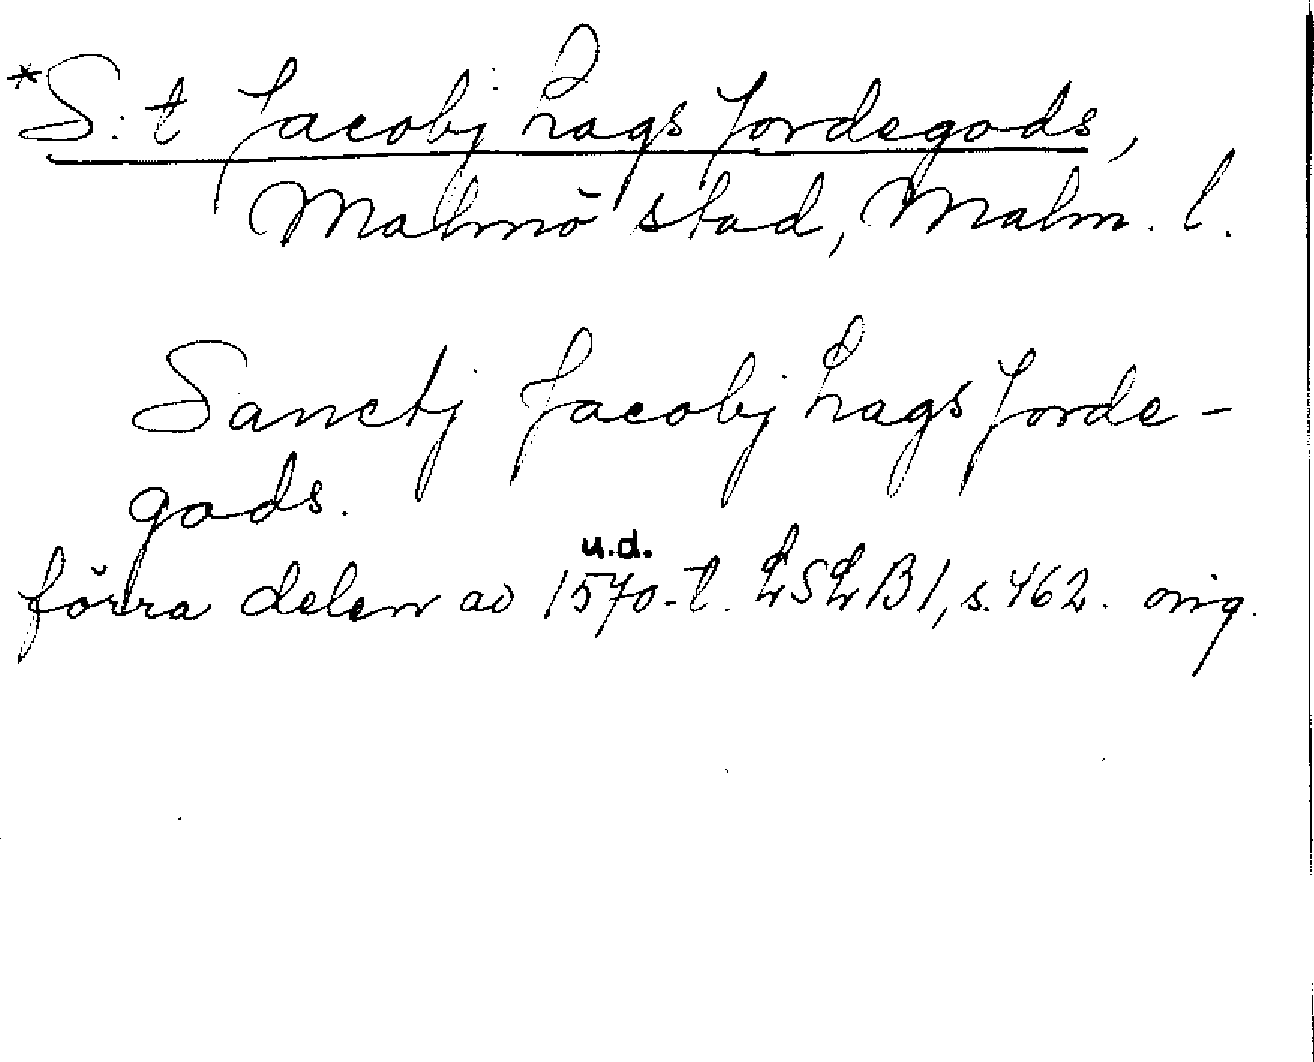 *S:t Jacobj Lags Jordegods,
Malmö stad, Malm. l.
Sanctj Jacobj Lags Jorde-
gods.
u.d.
förra delen av 1570-t. LSLB1, s. 462. orig.